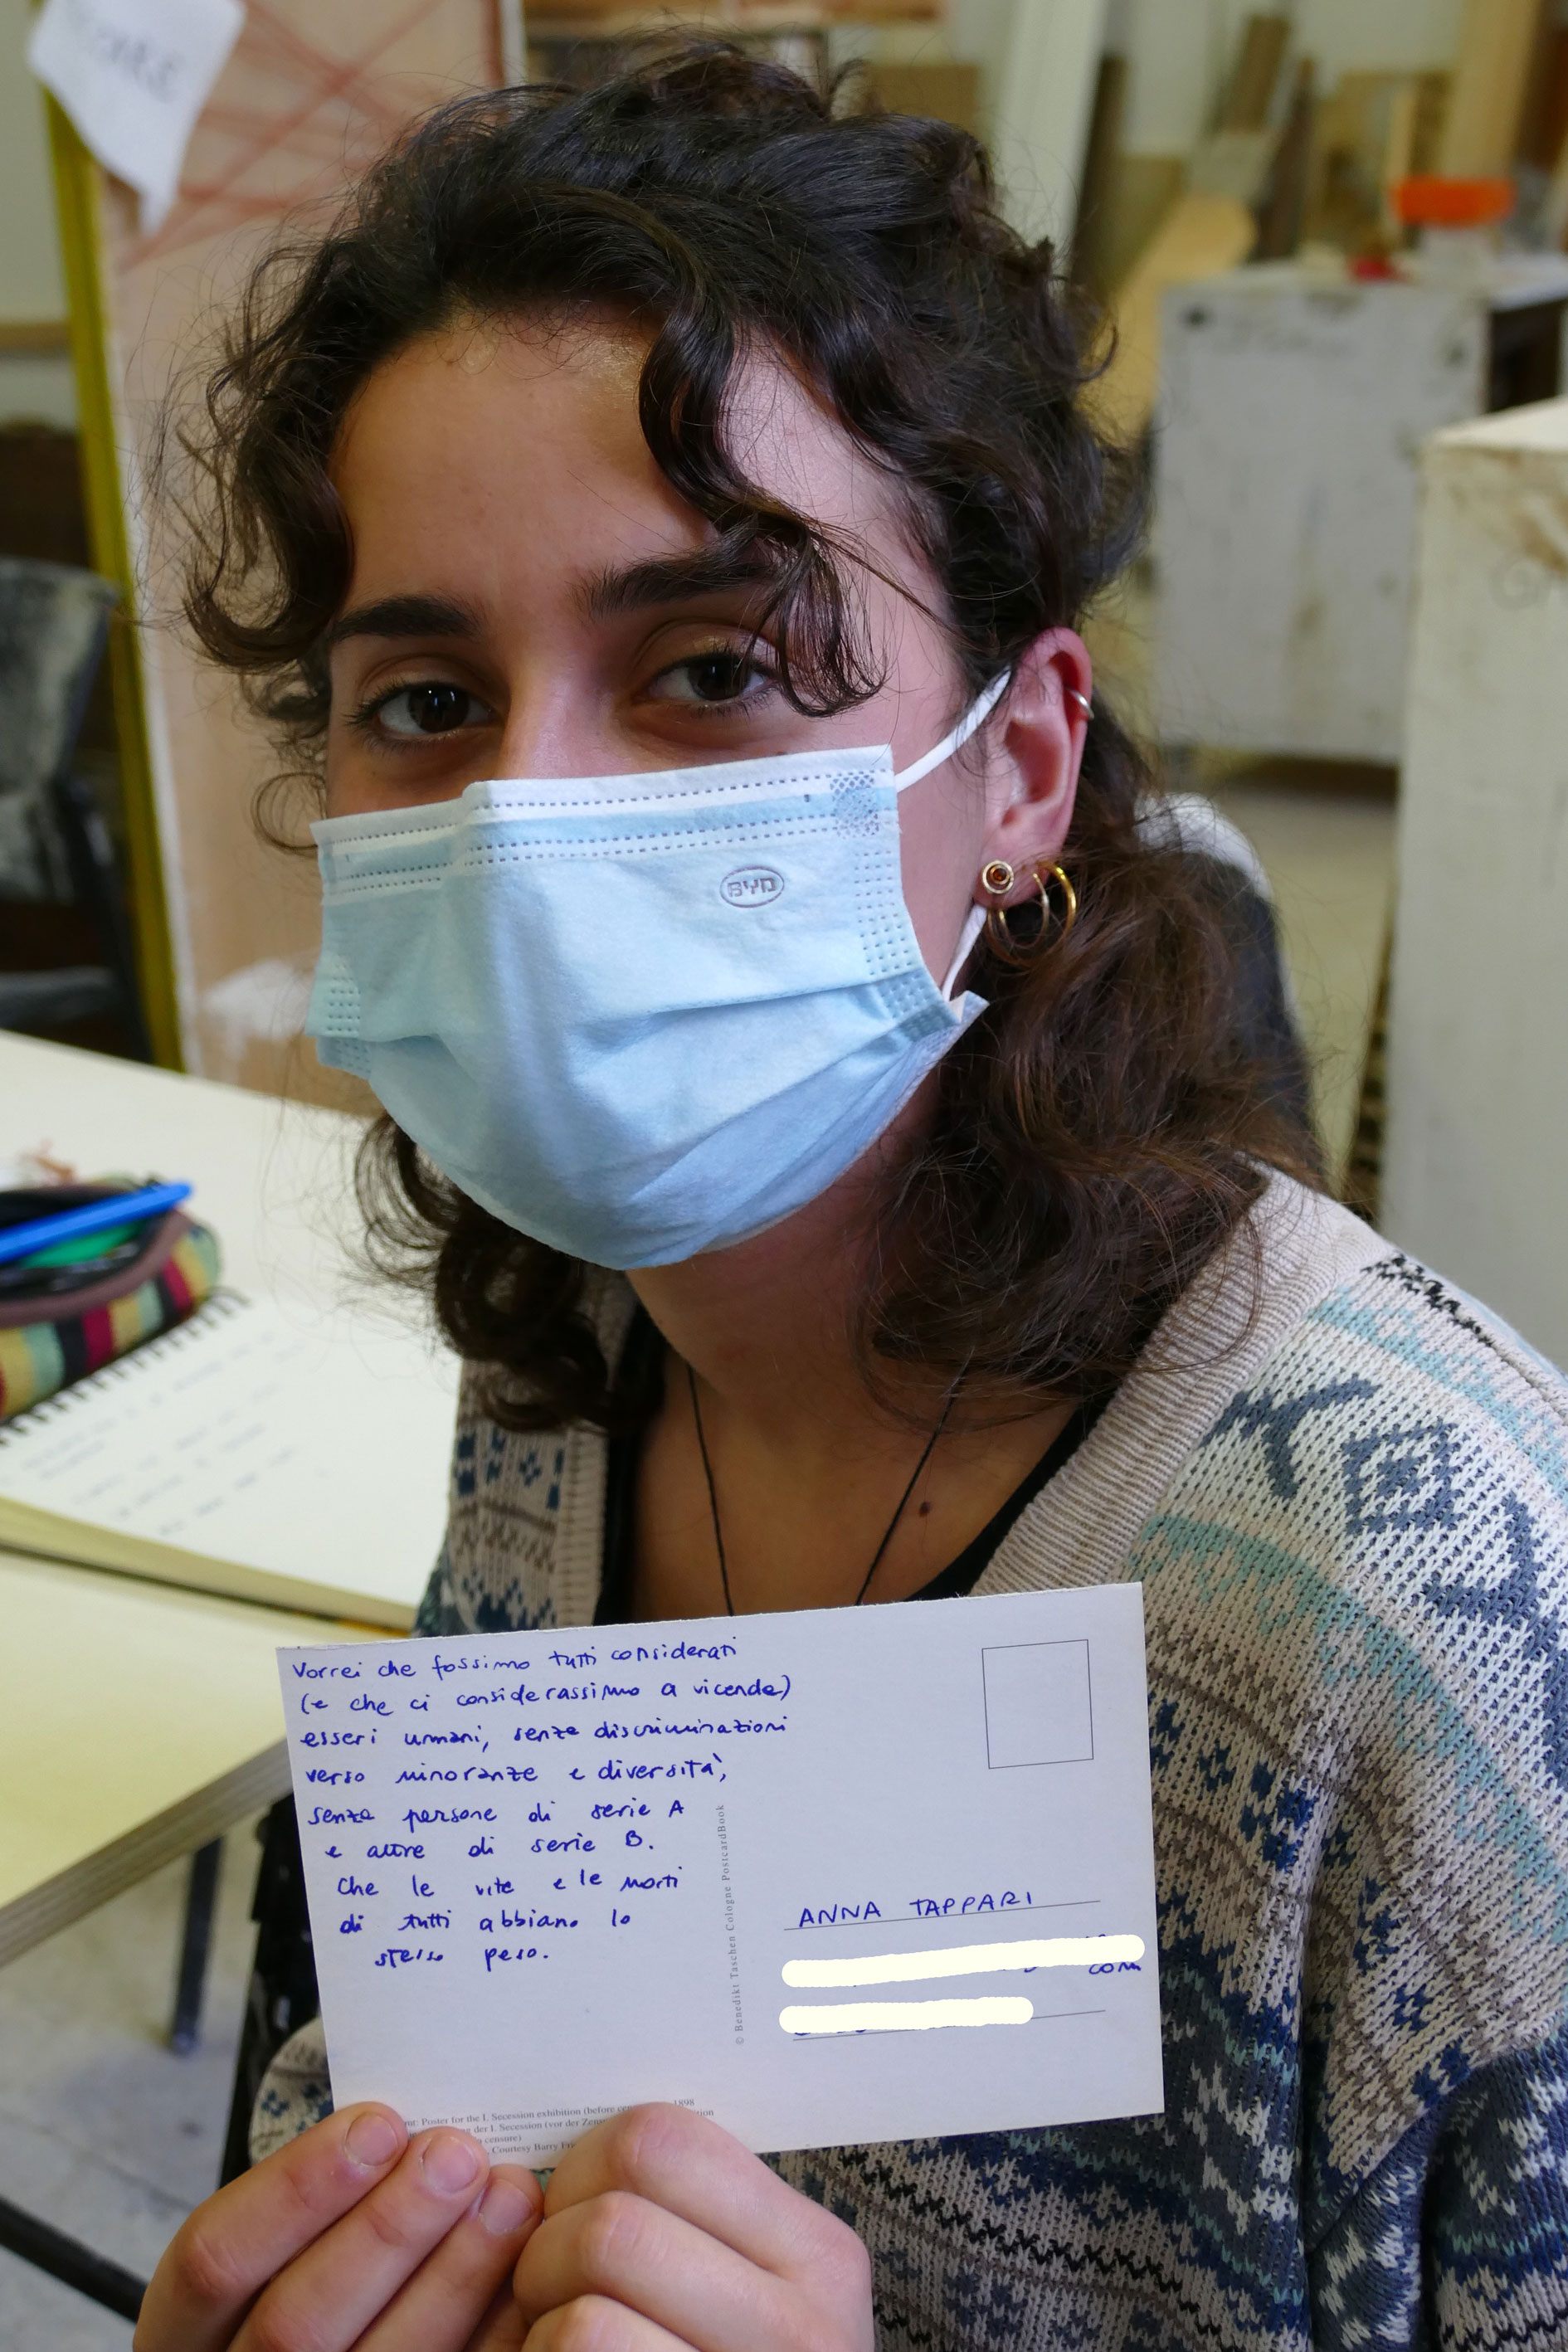 BYD
Vorrei che fossimo tutti considerati
(e che ci considerassimo a vicenda)
esseri umani, senza discriminazioni
verso minoranze e diversità,
senza persone di serie A
e altre di serie B.
Che le vite e le morti
di tutti abbiano lo
stesso peso.
© Benedikt Taschen Cologne PostcardBook
ANNA TAPPARI
com
Poster for the I. Secession exhibition (before 1898
der I. Secession (vor der
censure)
Courtesy Barry